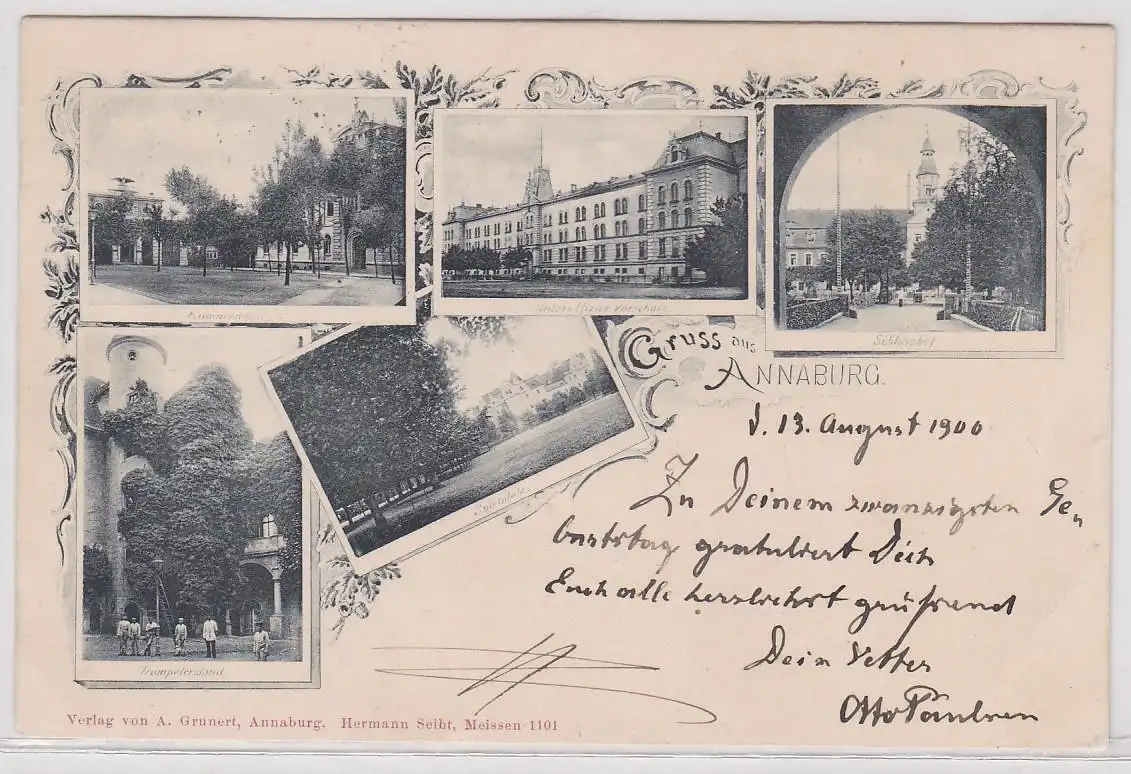 Unteroffizier Vorschule.
Schlosshof
Gruss aus
ANNABURG.
Trompeterstand
d. 13. August 1900
Zu Deinem zwanzigsten Ge-
burtstag gratuliert Dich
Euch alle herzlichst grüßend
Dein Vetter
Otto Paulsen
Verlag von A. Grunert, Annaburg. Hermann Seibt, Meissen 1101